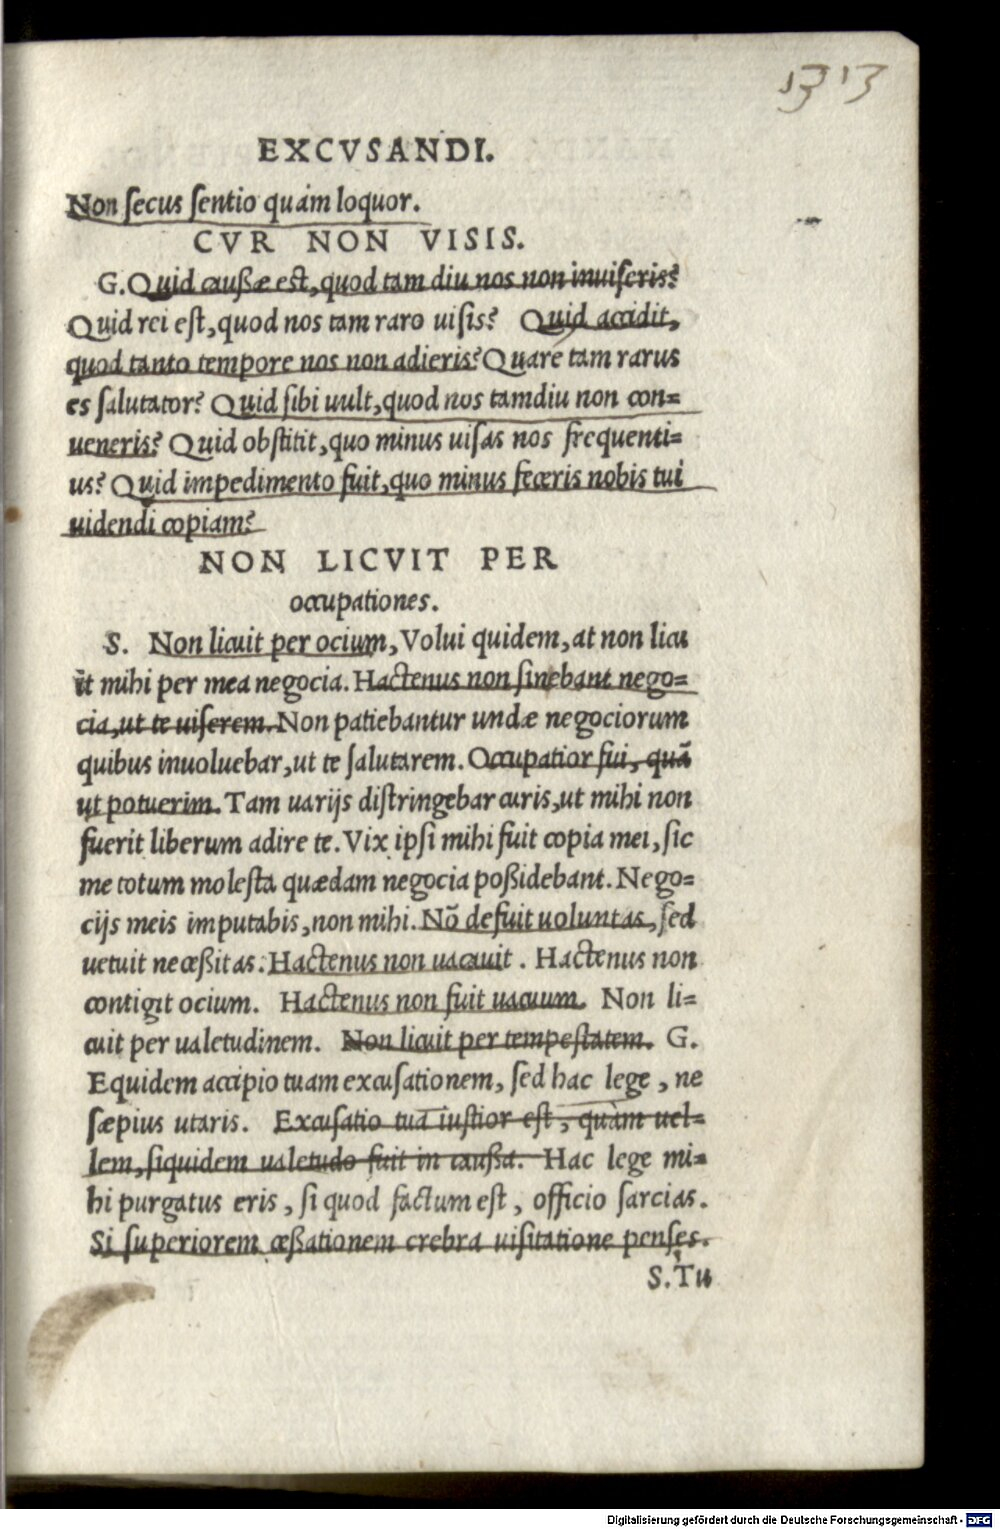 13 13
EXCVSANDI.
Non ſecus ſentio quàm loquor.
CVR NON VISIS.
G. Quid cauſſæ est, quod tam diu nos non inuiſeris?
Quid rei eſt, quod nos tam raro uiſis? Quid accidit,
quod tanto tempore nos non adieris? Quare tam rarus
es ſalutator? Quid ſibi uult, quod nos tamdiu non con=
ueneris? Quid obſtitit, quo minus uiſas nos frequenti=
us? Quid impedimento fuit, quo minus feceris nobis tui
uidendi copiam?
NON LICVIT PER
occupationes.
S. Non licuit per ocium, Volui quidem, at non licu
it mihi per mea negocia. Hactenus non ſinebant nego=
cia, ut te uiſerem. Non patiebantur undæ negociorum
quibus inuoluebar, ut te ſalutarem. Occupatior fui, quã
ut potuerim. Tam uarijs diſtringebar curis, ut mihi non
fuerit liberum adire te. Vix ipſi mihi fuit copia mei, ſic
me totum moleſta quædam negocia poßidebant. Nego=
cijs meis imputabis, non mihi. Nõ defuit uoluntas, ſed
uetuit neceßitas. Hactenus non uacauit. Hactenus non
contigit ocium. Hactenus non fuit uacuum. Non li=
cuit per ualetudinem. Non licuit per tempeſtatem. G.
Equidem accipio tuam excuſationem, ſed hac lege, ne
ſæpius utaris. Excuſatio tua iuſtior eſt, quàm uel=
lem, ſiquidem ualetudo fuit in cauſſa. Hac lege mi=
hi purgatus eris, ſi quod factum eſt, officio ſarcias.
Si ſuperiorem ceßationem crebra uiſitatione penſes.
S. Tu
Digitalisierung gefördert durch die Deutsche Forschungsgemeinschaft - DFG